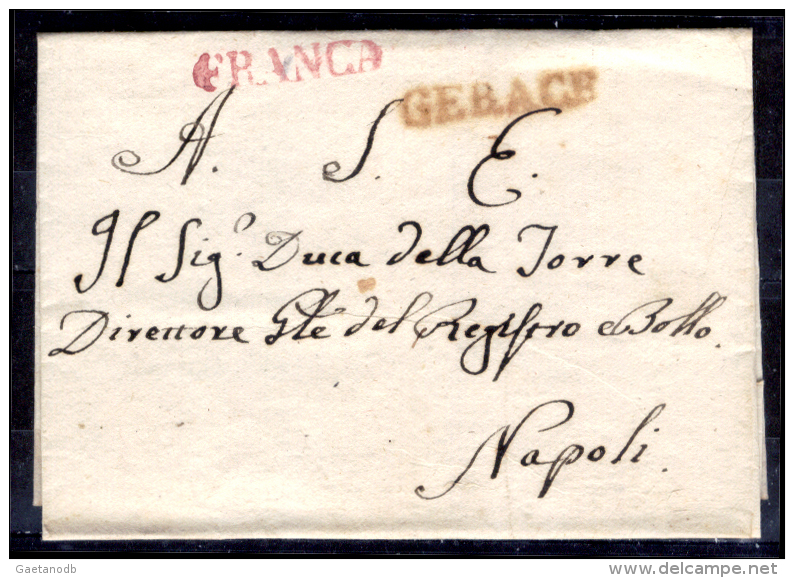 FRANCA
GERACE
A. S. E.
Il Sig.ʳ Duca della Torre
Direttore Gle del Registro e Bollo.
Napoli.
Gaetanodb
delcampe.net